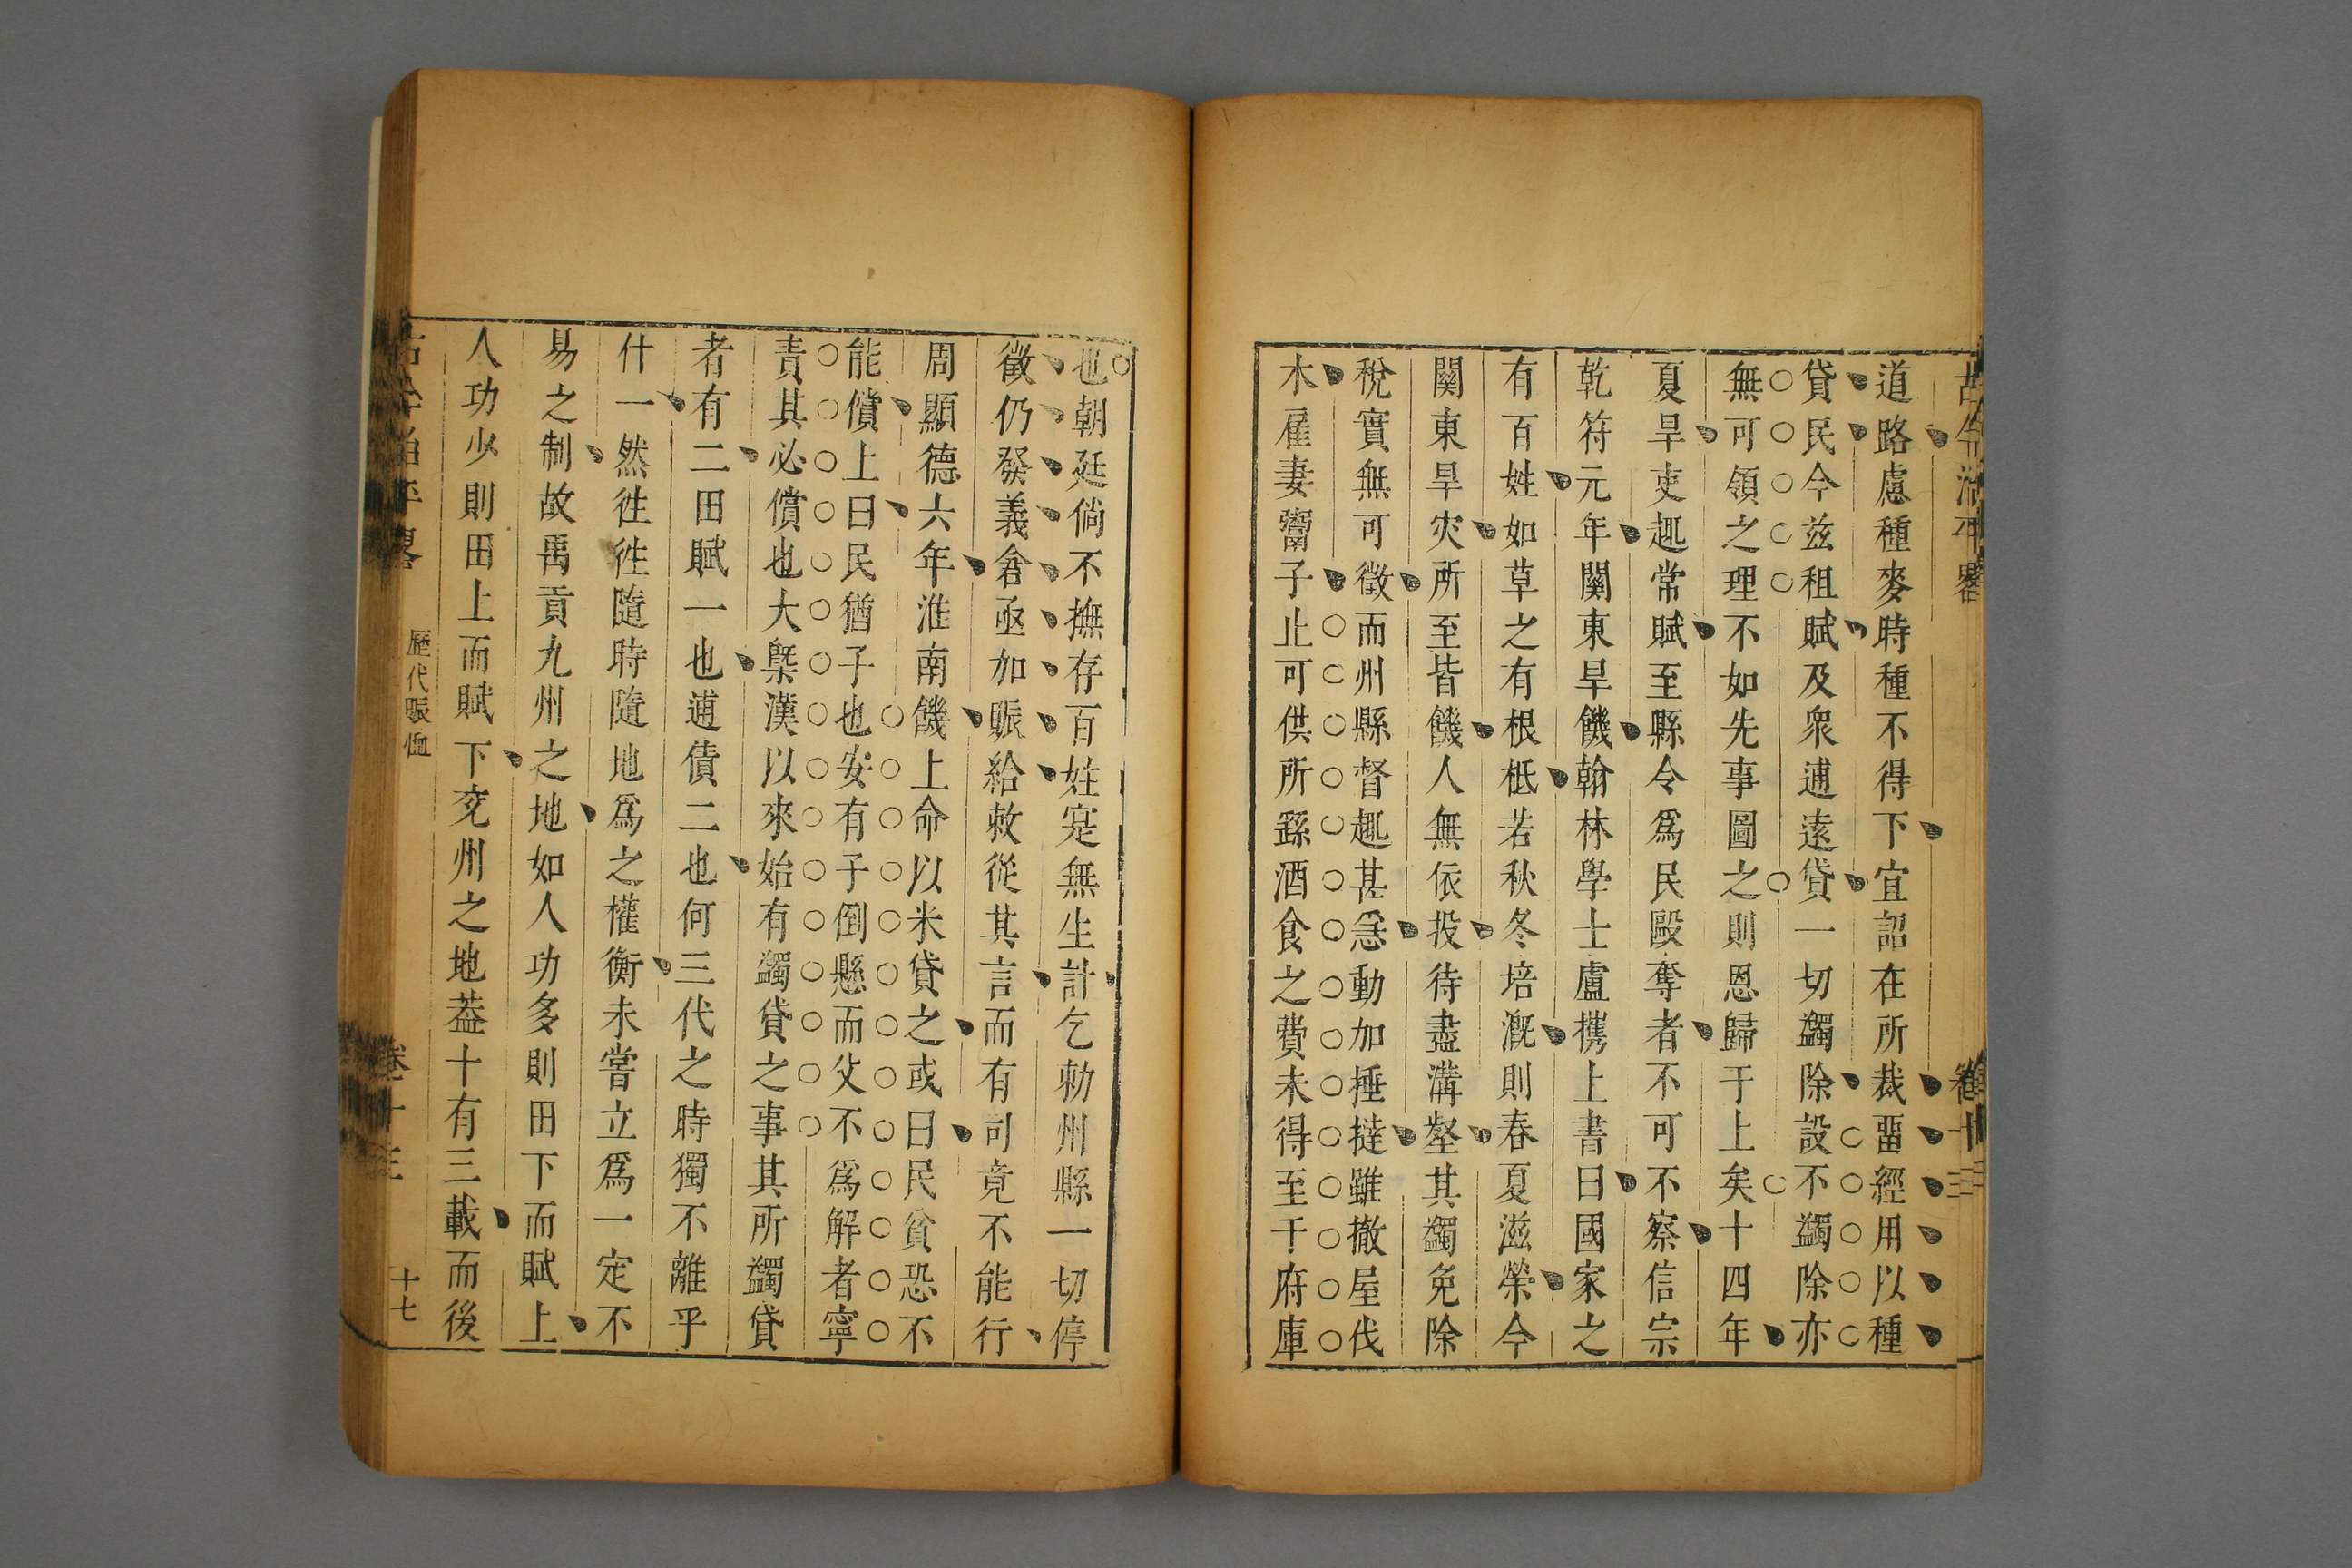 古今治平畧
卷十三
道路慮種麥時種不得下宜詔在所裁畱經用以種
貸民今兹租賦及衆逋遠貸一切蠲除設不蠲除亦
無可領之理不如先事圖之則恩歸于上矣十四年
夏旱吏趣常賦至縣令爲民毆奪者不可不察信宗
乾符元年關東旱饑翰林學士盧攜上書曰國家之
有百姓如草之有根柢若秋冬培溉則春夏滋榮今
關東旱灾所至皆饑人無依投待盡溝壑其蠲免除
稅實無可徵而州縣督趣甚急動加捶撻雖撤屋伐
木雇妻鬻子止可供所繇酒食之費未得至于府庫
也朝廷倘不撫存百姓寔無生計乞勑州縣一切停
徵仍發義倉亟加賑給敕從其言而有司竟不能行
周顯德六年淮南饑上命以米貸之或曰民貧恐不
能償上曰民猶子也安有子倒懸而父不爲解者寧
責其必償也大槩漢以來始有蠲貸之事其所蠲貸
者有二田賦一也逋債二也何三代之時獨不離乎
什一然徃徃隨時隨地爲之權衡未甞立爲一定不
易之制故禹貢九州之地如人功多則田下而賦上
人功少則田上而賦下兖州之地葢十有三載而後
古今治平畧
歷代賑恤
卷十三
十七